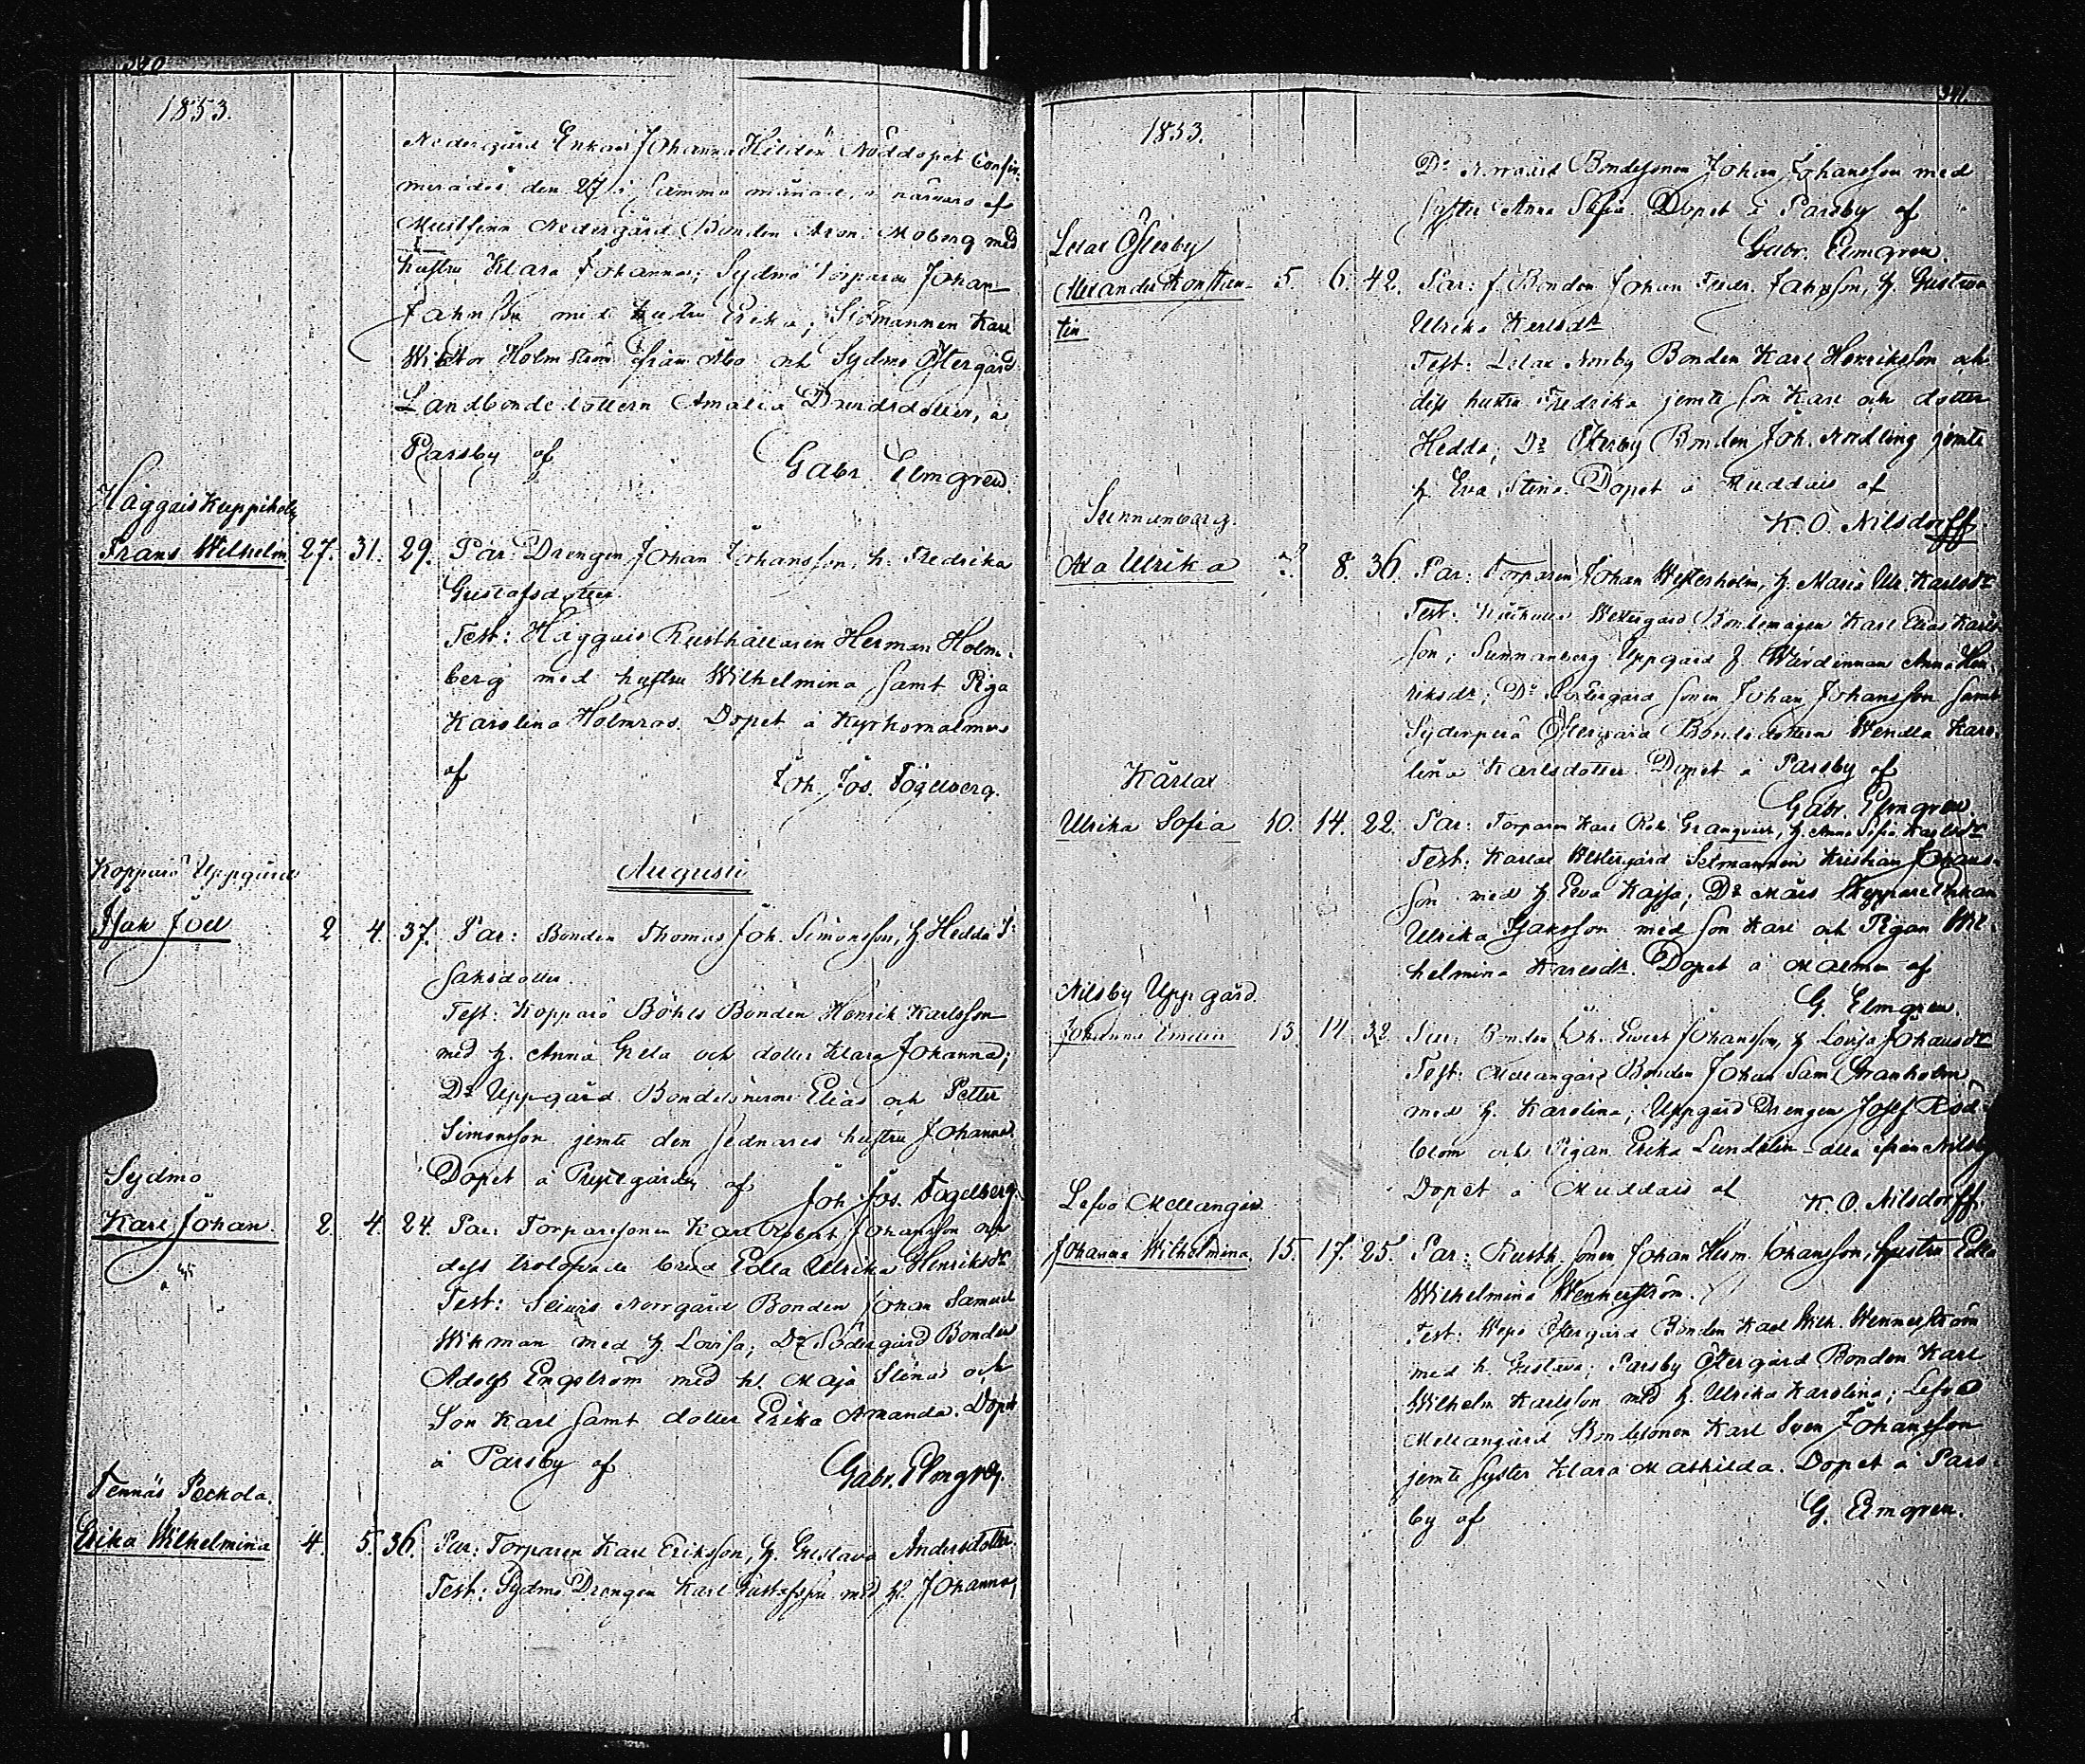 340
1853.
Nedergård Enkan Johanna Hildén. Nöddopet Confir-
merades den 27 i samma månad, i närvaro af
Nedergård Bonden Aron Moberg med
hustru Klara Johanna; Sydmo Torparen Johan
Jahnsson med hustru Erika; Sjömannen Karl
Wiktor Holmström från Åbo och Sydmo Östergård
Landbondedottern Amalia Davidsdotter, å
Parsby af
Gabr. Elmgren.
Häggais
Frans Wilhelm. 27. 31. 29. Par: Drengen Johan Johansson, h. Fredrika
Gustafsdotter.
Test: Häggais Rusthållaren Herman Holm-
berg med hustru Wilhelmina samt Piga
Karolina Holmros. Döpet å Kyrkomalmen
af
Joh. Jos. Fogelberg.
Augusti
Kopparö Uppgård
Isak Joel 2. 4. 37. Par: Bonden Thomas Joh. Simonsson, h. Hedda I-
saksdotter.
Test: Kopparö Böhls Bonden Henrik Karlsson
med h. Anna Greta och dotter Klara Johanna;
Do Uppgård Bondesönerne Elias och Petter
Simonsson jemte den sednares hustru Johanna.
Döpet å Prestgården af Joh. Jos. Fogelberg.
Sydmo
Karl Johan 2. 4. 24. Par: Torparesonen Karl Robert Johansson och
dess trolofvade brud Edla Ulrika Henriksdr
Test: Norrgård Bonden Johan Samuel
Wikman med h. Lovisa; Do Södergård Bonden
Adolf Engström med h. Maja Stina och
Son Karl samt dotter Erika Amanda. Döpet
å Parsby af
Gabr. Elmgren.
Tennäs Peckola.
Erika Wilhelmina 4. 5. 36. Par: Torparen Karl Eriksson, h. Gustava Andersdotter
Test: Sydmo Drengen Karl Gustafsson med h. Johanna;
341.
1853.
Do Norrgård Bondesonen Johan Johansson med
Syster Anna Sofia. Döpet å Parsby af
Gabr. Elmgren.
Lelax Österby
Alexander Konstan-
tin 5. 6. 42. Par: Bonden Johan Jahnsson, h. Gustava
Ulrika Karlsdr
Test: Lelax Norrby Bonden Karl Henriksson och
dess hustru Fredrika jemte son Karl och dotter
Hedda; Do Österby Bonden Joh. Nordling jemte
h. Eva Stina. Döpet å Muddais af
K. O. Nilsdorff.
Sunnanberg.
Ulrika 8. 36. Par: Torparen Johan Westerholm, h. Maria Ulr. Karlsdr
Test: Westergård Bondemågen Karl Elias Karls-
son; Sunnanberg Uppgård Wärdinnan Anna Hen-
riksdr; Do sonen Johan Johansson samt
Östergård Bondedottern Wendla Karo-
lina Karlsdotter. Döpet å Parsby af
Gabr. Elmgren
Kärlax
Ulrika Sofia 10. 14. 22. Par: Torparen Karl Rob. Granqvist, h. Anna Sofia Karlsdr
Test: Kärlax Westergård Johans-
son med h. Eva Kajsa; Do Skepparenkan
Ulrika Isaksson med son Karl och Pigan Wil-
helmina Karlsdr. Döpet å Malmen af
G. Elmgren.
Nilsby Uppgård.
Johanna Emilia 13. 14. 32. Par: Bonden Joh. Evert Johansson, h. Lovisa Johansdr
Test: Mellangård Bonden Johan Sam. Granholm
med h. Karolina; Uppgård Drengen Josef Ros-
blom och Pigan Erika Lundelin alla från Nilsby
Döpet å Muddais af
K. O. Nilsdorff.
Lefvo Mellangård
Johanna Wilhelmina 15. 17. 25. Par: Rusth. sonen Johan Herm. Johansson, hustru Edla
Wilhelmina Wennerström.
Test: Wepo Östergård Bonden Karl Wilh. Wennerström
med h. Gustava; Parsby Östergård Bonden Karl
Wilhelm Karlsson med h. Ulrika Karolina; Lefvo
Mellangård Bondesonen Karl Sven Johansson
jemte syster Klara Mathilda. Döpet å Pars-
by af
G. Elmgren.